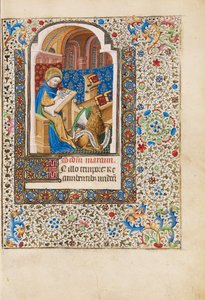 Scdm marcum.
In illo tempore Re
cumbentibus undeci